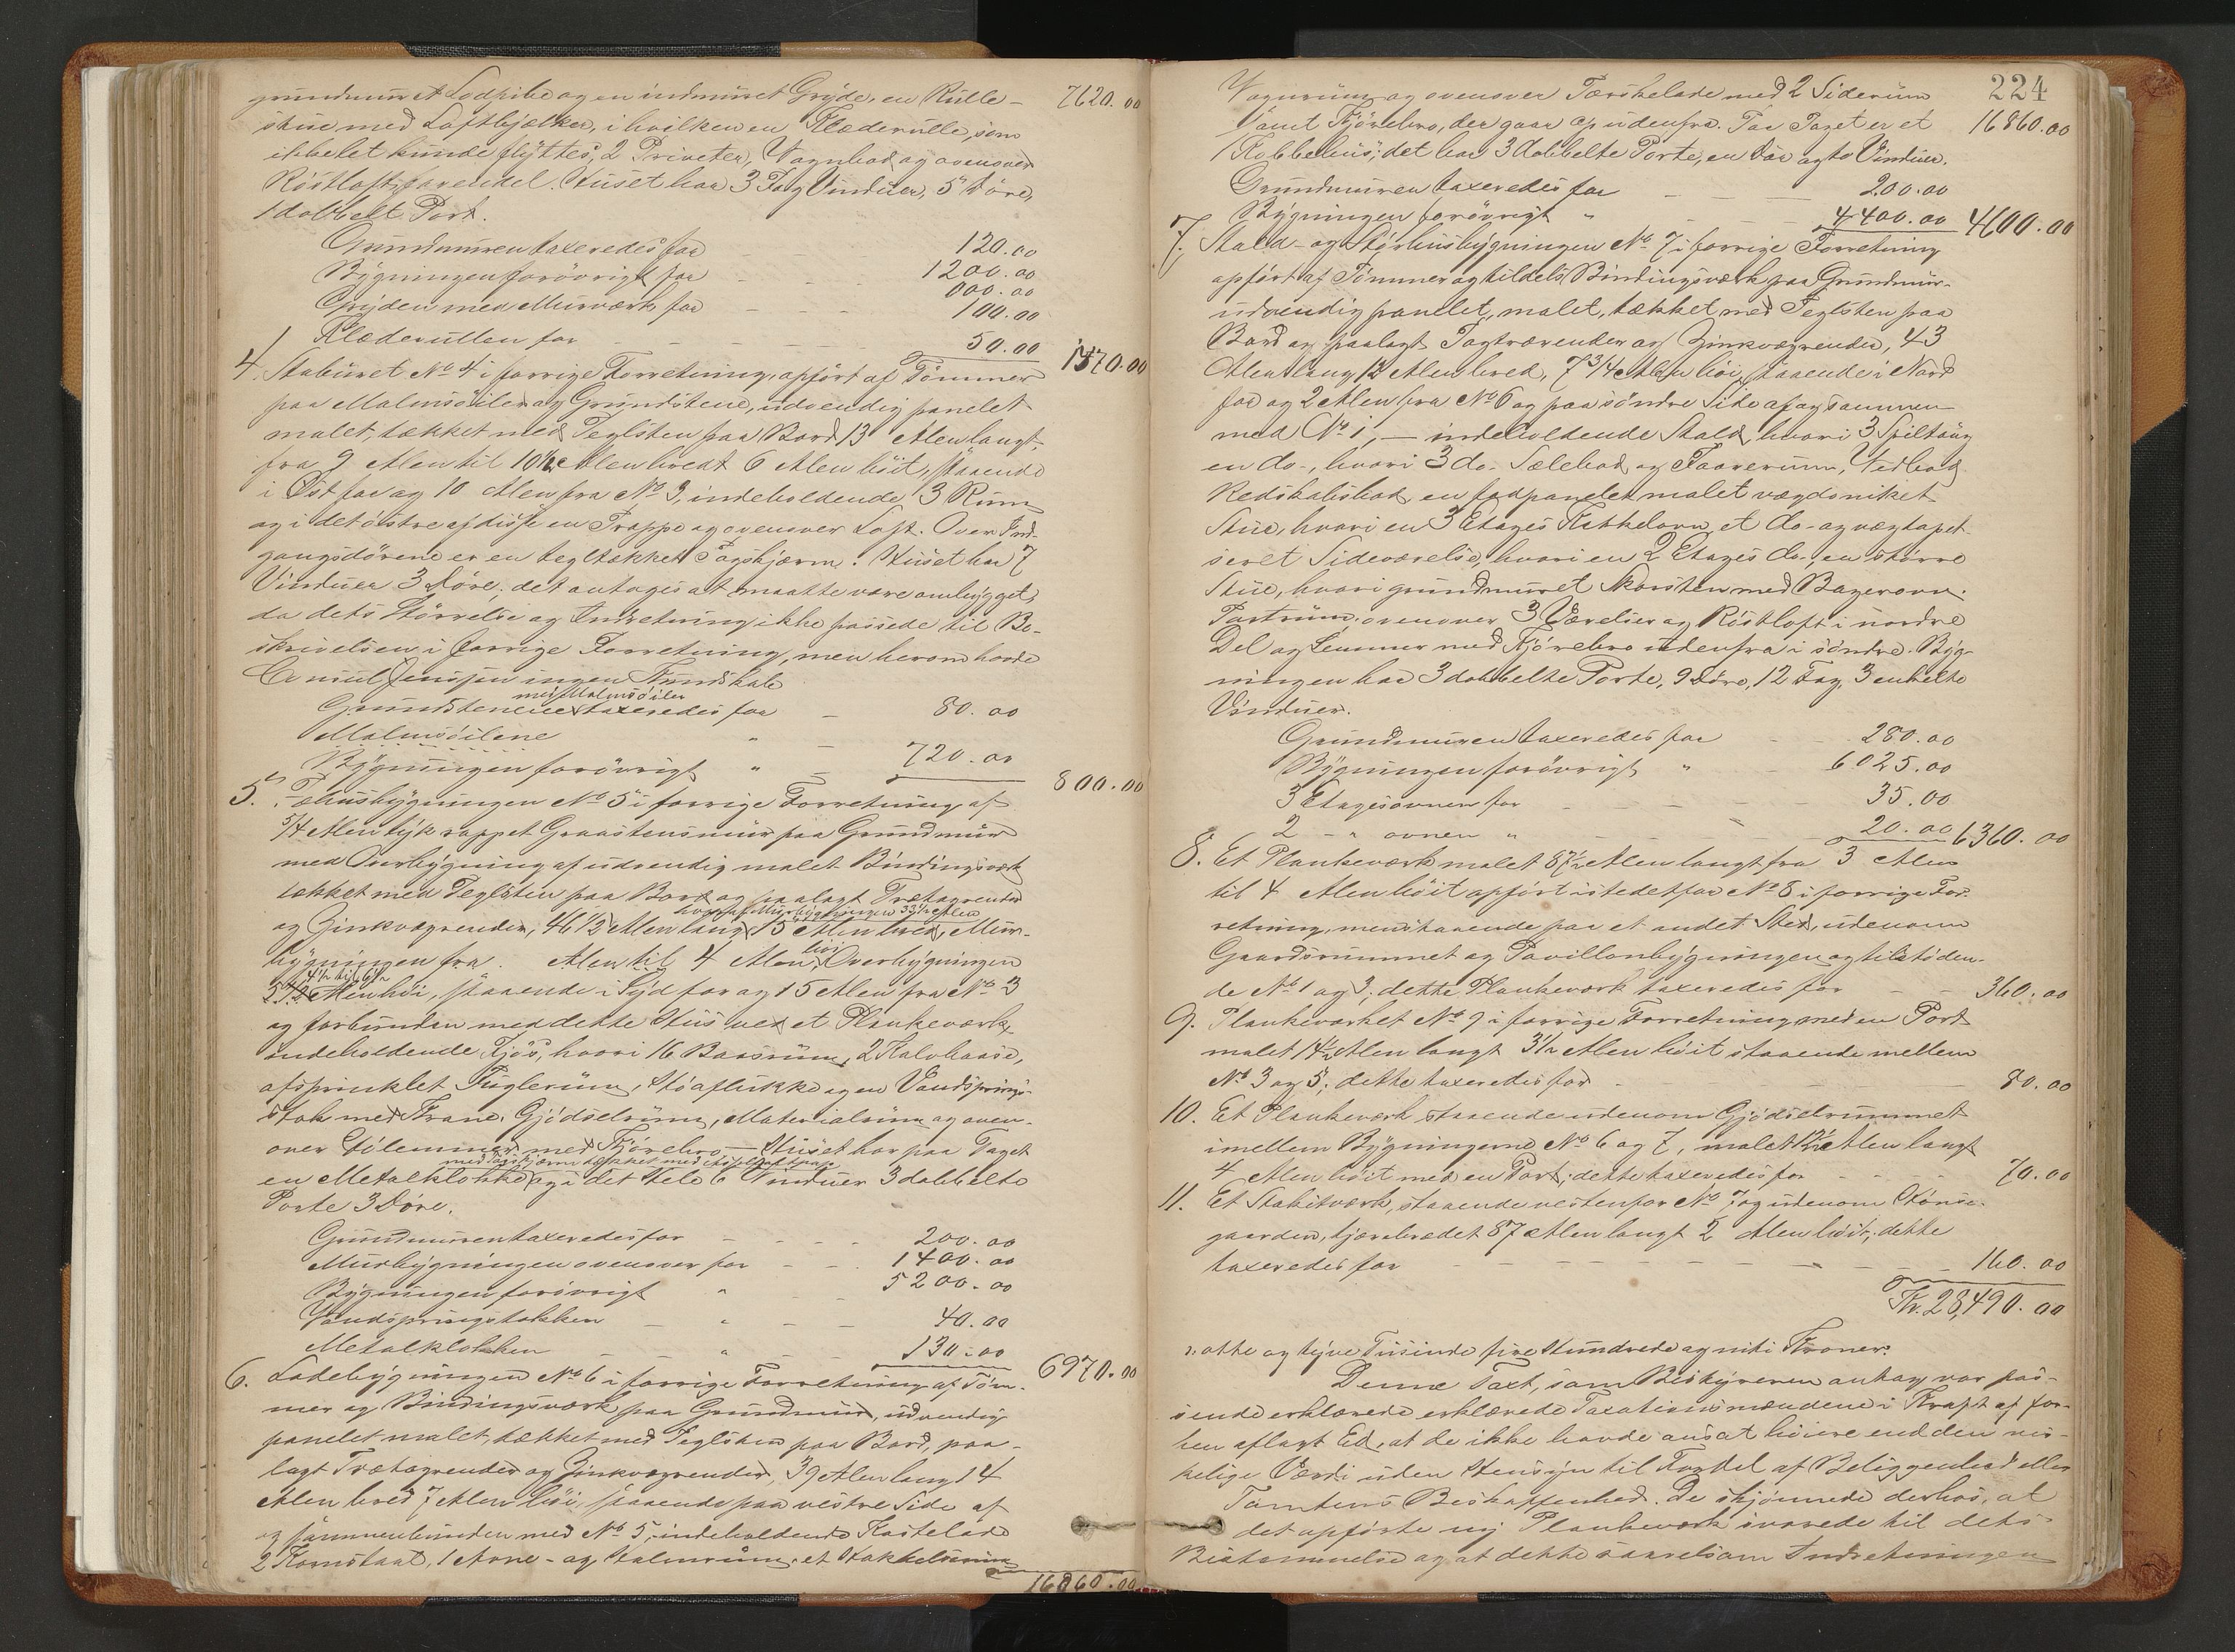 grundmuret Lodpibe og en indmuret Gryde, en Rulle- 7620.00
stue med Loftbjælker, i hvilken en Klæderulle, som
ikke let kunde flyttes, 2 Priveter, Vognbod og ovenover
Röstloft forendel. Huset har 3 Fag Vinduer, 5 Döre,
1 dobbelt Port.
Grundmuren taxeredes for 120.00
Bygningen forövrigt for 1200.00
000.00
Gryden med Murværk for 100.00
Klæderullen for 50.00 1470.00
4. Staburet No 4 i forrige Forretning, opfört af Tömmer
paa Malmsöiler og Grundstene, udvendig panelet
malet, tækket med Teglsten paa Bord 13 Alen langt,
fra 9 Alen til 10½ Alen bredt 6 Alen höit, staaende
i Öst for og 10 Alen fra No 3, indeholdende 3 Rum
og i det östre af disse en Trappe og ovenover Loft. Over Ind-
gangsdörene er en tegltækket Tagskjærm. Huset har 7
Vinduer 3 Döre; det antages at maatte være ombygget,
da dets Störrelse og Indretning ikke passede til Be-
skrivelsen i forrige Forretning, men herom havde
Consul Jenssen ingen Kundskab
med Malmsöiler
Grundstenene taxeredes for 80.00
Malmsöilene "
Bygningen forövrigt " 720.00
800.00
5. Fæhusbygningen No 5 i forrige Forretning af
5/4 Alen tyk rappet Graastensmuur paa Grundmur
med Overbygning af udvendig malet Bindingsværk
tækket med Teglsten paa Bord og paalagt Trætagrender
hvoraf Murbygningen 33½ Alen
og Zinkvægrender, 46½ Alen lang 15 Alen bred, Mur-
höi
bygningen fra Alen til 4 Alen, Overbygningen
4½ til 6½
Alen höi, staaende i Syd for og 15 Alen fra No 3
og forbunden med dette Hus ved et Plankeværk,
indeholdende Fjös, hvori 16 Baasrum, 2 Kalvbaase,
afsprinklet Fuglerum, Höaflukke og en Vandsprings-
stok med Krane, Gjödselrum, Materialrum og oven-
over Hölemmer med Kjörebro. — Huset har paa Taget
med Tagskjærm tækket med Asphaltpap
en Metalklokke og i det Hele 6 Vinduer 3 dobbelte
Porte 3 Döre.
Grundmuren taxeredes for 200.00
Murbygningen ovenover for 1400.00
Bygningen forövrigt " 5200.00
Vandspringstokken " 40.00
Metalklokken " 130.00
6970.00
6. Ladebygningen No 6 i forrige Forretning af Töm-
mer og Bindingsværk paa Grundmur, udvendig
panelet malet, tækket med Teglsten paa Bord, paa-
lagt Trætagrender og Zinkvægrender, 39 Alen lang 14
Alen bred 7 Alen höi, staaende paa vestre Side af
og sammenbunden med No 5, indeholdende Kastelade
2 Kornstaal, 1 Avne- og Halmrum, et Hakkelserum
16860.00
224
Vognrum og ovenover Tærskelade med 2 Siderum
samt Kjörebro, der gaar op udenfra. Paa Taget er et
16860.00
Kobbehus; det har 3 dobbelte Porte, en Dör og to Vinduer.
Grundmuren taxeredes for 200.00
Bygningen forövrigt " 4400.00 4600.00
7. Stald- og Störhusbygningen No 7 i forrige Forretning
opfört af Tömmer og tildels Bindingsværk paa Grundmur
udvendig panelet, malet, tækket med Teglsten paa
Bord og paalagt Tagtrærender og Zinkvægrender, 43
Alen lang 12 Alen bred, 7 3/4 Alen höi, staaende i Nord
for og 2 Alen fra No 6 og paa söndre Side af og sammen
med No 1, — indeholdende Stald, hvori 3 Spiltaug
en do., hvori 3 do. Sælebod og Faarerum, Vedbod
Redskabsbod, en fodpanelet malet vægdsniket
Stue, hvori en 3 Etages Kakkelovn, et do. og vægtapet-
seret Sideværelse, hvori en 2 Etages do., en större
Stue, hvori grundmuret Skorsten med Bagerovn.
ovenover 3 Værelser og Röstloft i nordre
Del og Lemmer med Kjörebro udenfra i söndre. Byg-
ningen har 3 dobbelte Porte, 9 Döre, 12 Fag, 3 enkelte
Vinduer.
Grundmuren taxeredes for 280.00
Bygningen forövrigt " 6025.00
3 Etagesovnen for 35.00
2 - " ovnen " 20.00 6360.00
8. Et Plankeværk malet 87½ Alen langt, fra 3 Alen
til 4 Alen höit opfört istedetfor No 8 i forrige For-
retning, men staaende paa et andet Sted, udenom
Gaardsrummet og Pavillonbygningen og tilstöden-
de No 1 og 3; dette Plankeværk taxeredes for 360.00
9. Plankeværket No 9 i forrige Forretning med en Port
malet 14½ Alen langt 3½ Alen höit staaende mellem
No 3 og 5; dette taxeredes for 80.00
10. Et Plankeværk staaende udenom Gjödselrummet
imellem Bygningerne No 6 og 7, malet 12½ Alen langt
4 Alen höit med en Port; dette taxeredes for 70.00
11. Et Stakitværk, staaende vestenfor No 7 og udenom Hönse-
gaarden, tjærebredet 87 Alen langt 2 Alen höit; dette
taxeredes for 160.00
Kr. 28,490.00
otte og tyve Tusinde fire Hundrede og niti Kroner.
Denne Taxt, som Bestyreren antog var pas-
sende erklærede erklærede Taxationsmændene i Kraft af for-
hen aflagt Ed, at de ikke havde ansat höiere end den vir-
kelige Værdi uden Hensyn til Fordel af Beliggenhed eller
Tomtens Beskaffenhed. De skjönnede derhos, at
det opförte ny Plankeværk svarede til dets
Bestemmelse og at dette saavelsom Indretningen